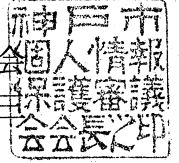 神戸市
個人情報
保護審議
会会長之印
会